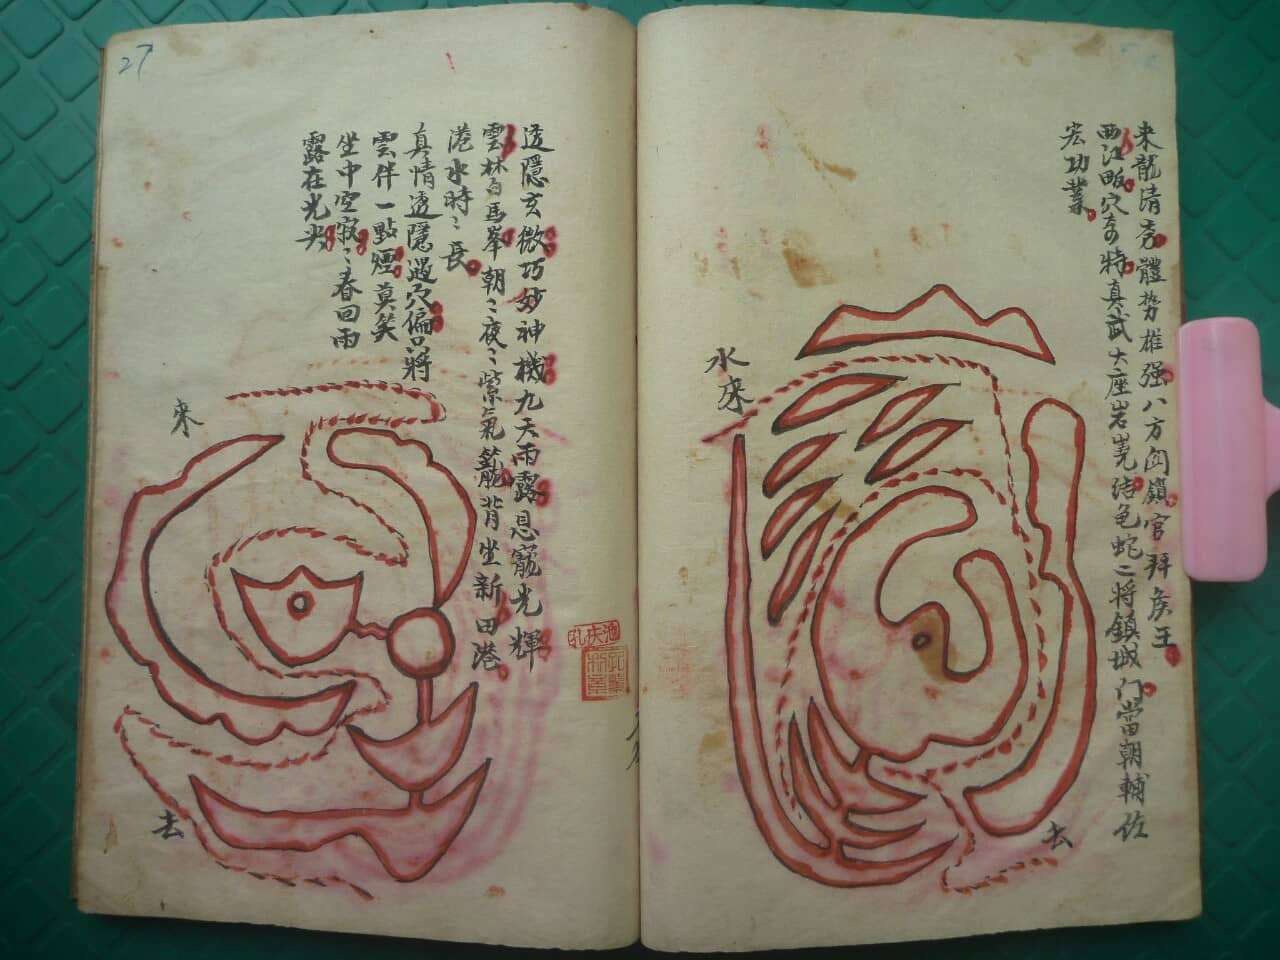 来龍清秀體势雄强八方闗鎖官拜矦王
西江畈穴奇特真武大座岩嶤结龟蛇二将鎮城门當朝輔佐
宏功業
水來
去
27
透隱玄微巧妙神機九天雨露恩寵光輝
雲林白馬峯朝〻夜〻紫氣籠背坐新田港
港水時〻長
真情透隱過穴偏只將
雲伴一點煙莫笑
坐中空寂〻春回雨
露在光尖
來
去